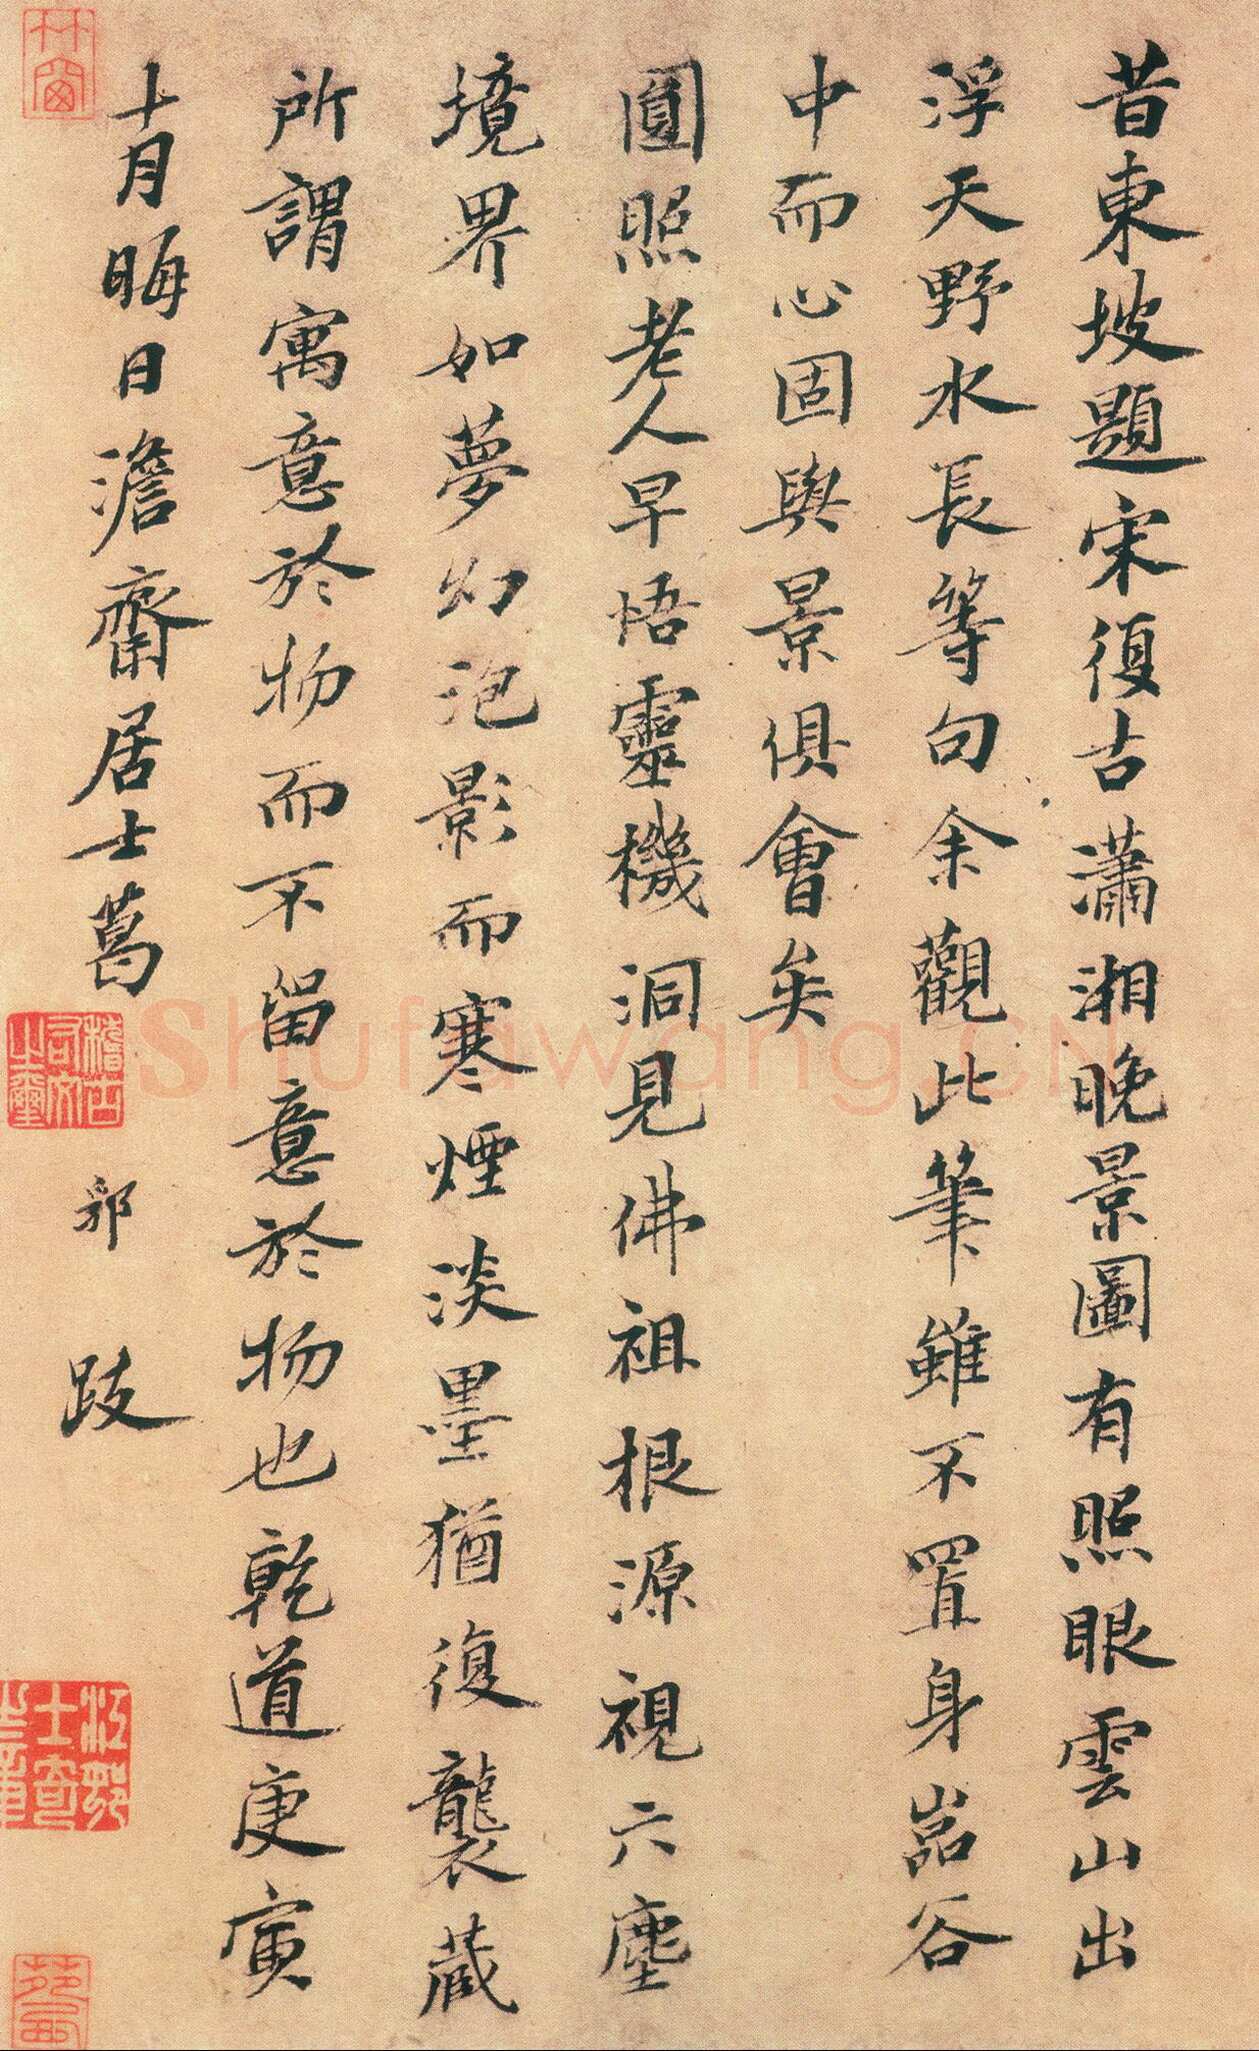 昔東坡題宋復古瀟湘晚景圖有照眼雲山出
浮天野水長等句余觀此筆雖不置身嵓谷
中而心固與景俱會矣
圓照老人早悟靈機洞見佛祖根源視六塵
境界如夢幻泡影而寒煙淡墨猶復襲藏
所謂寓意於物而不留意於物也乾道庚寅
十月晦日澹齋居士葛 郛 跋
Shufawang.CN